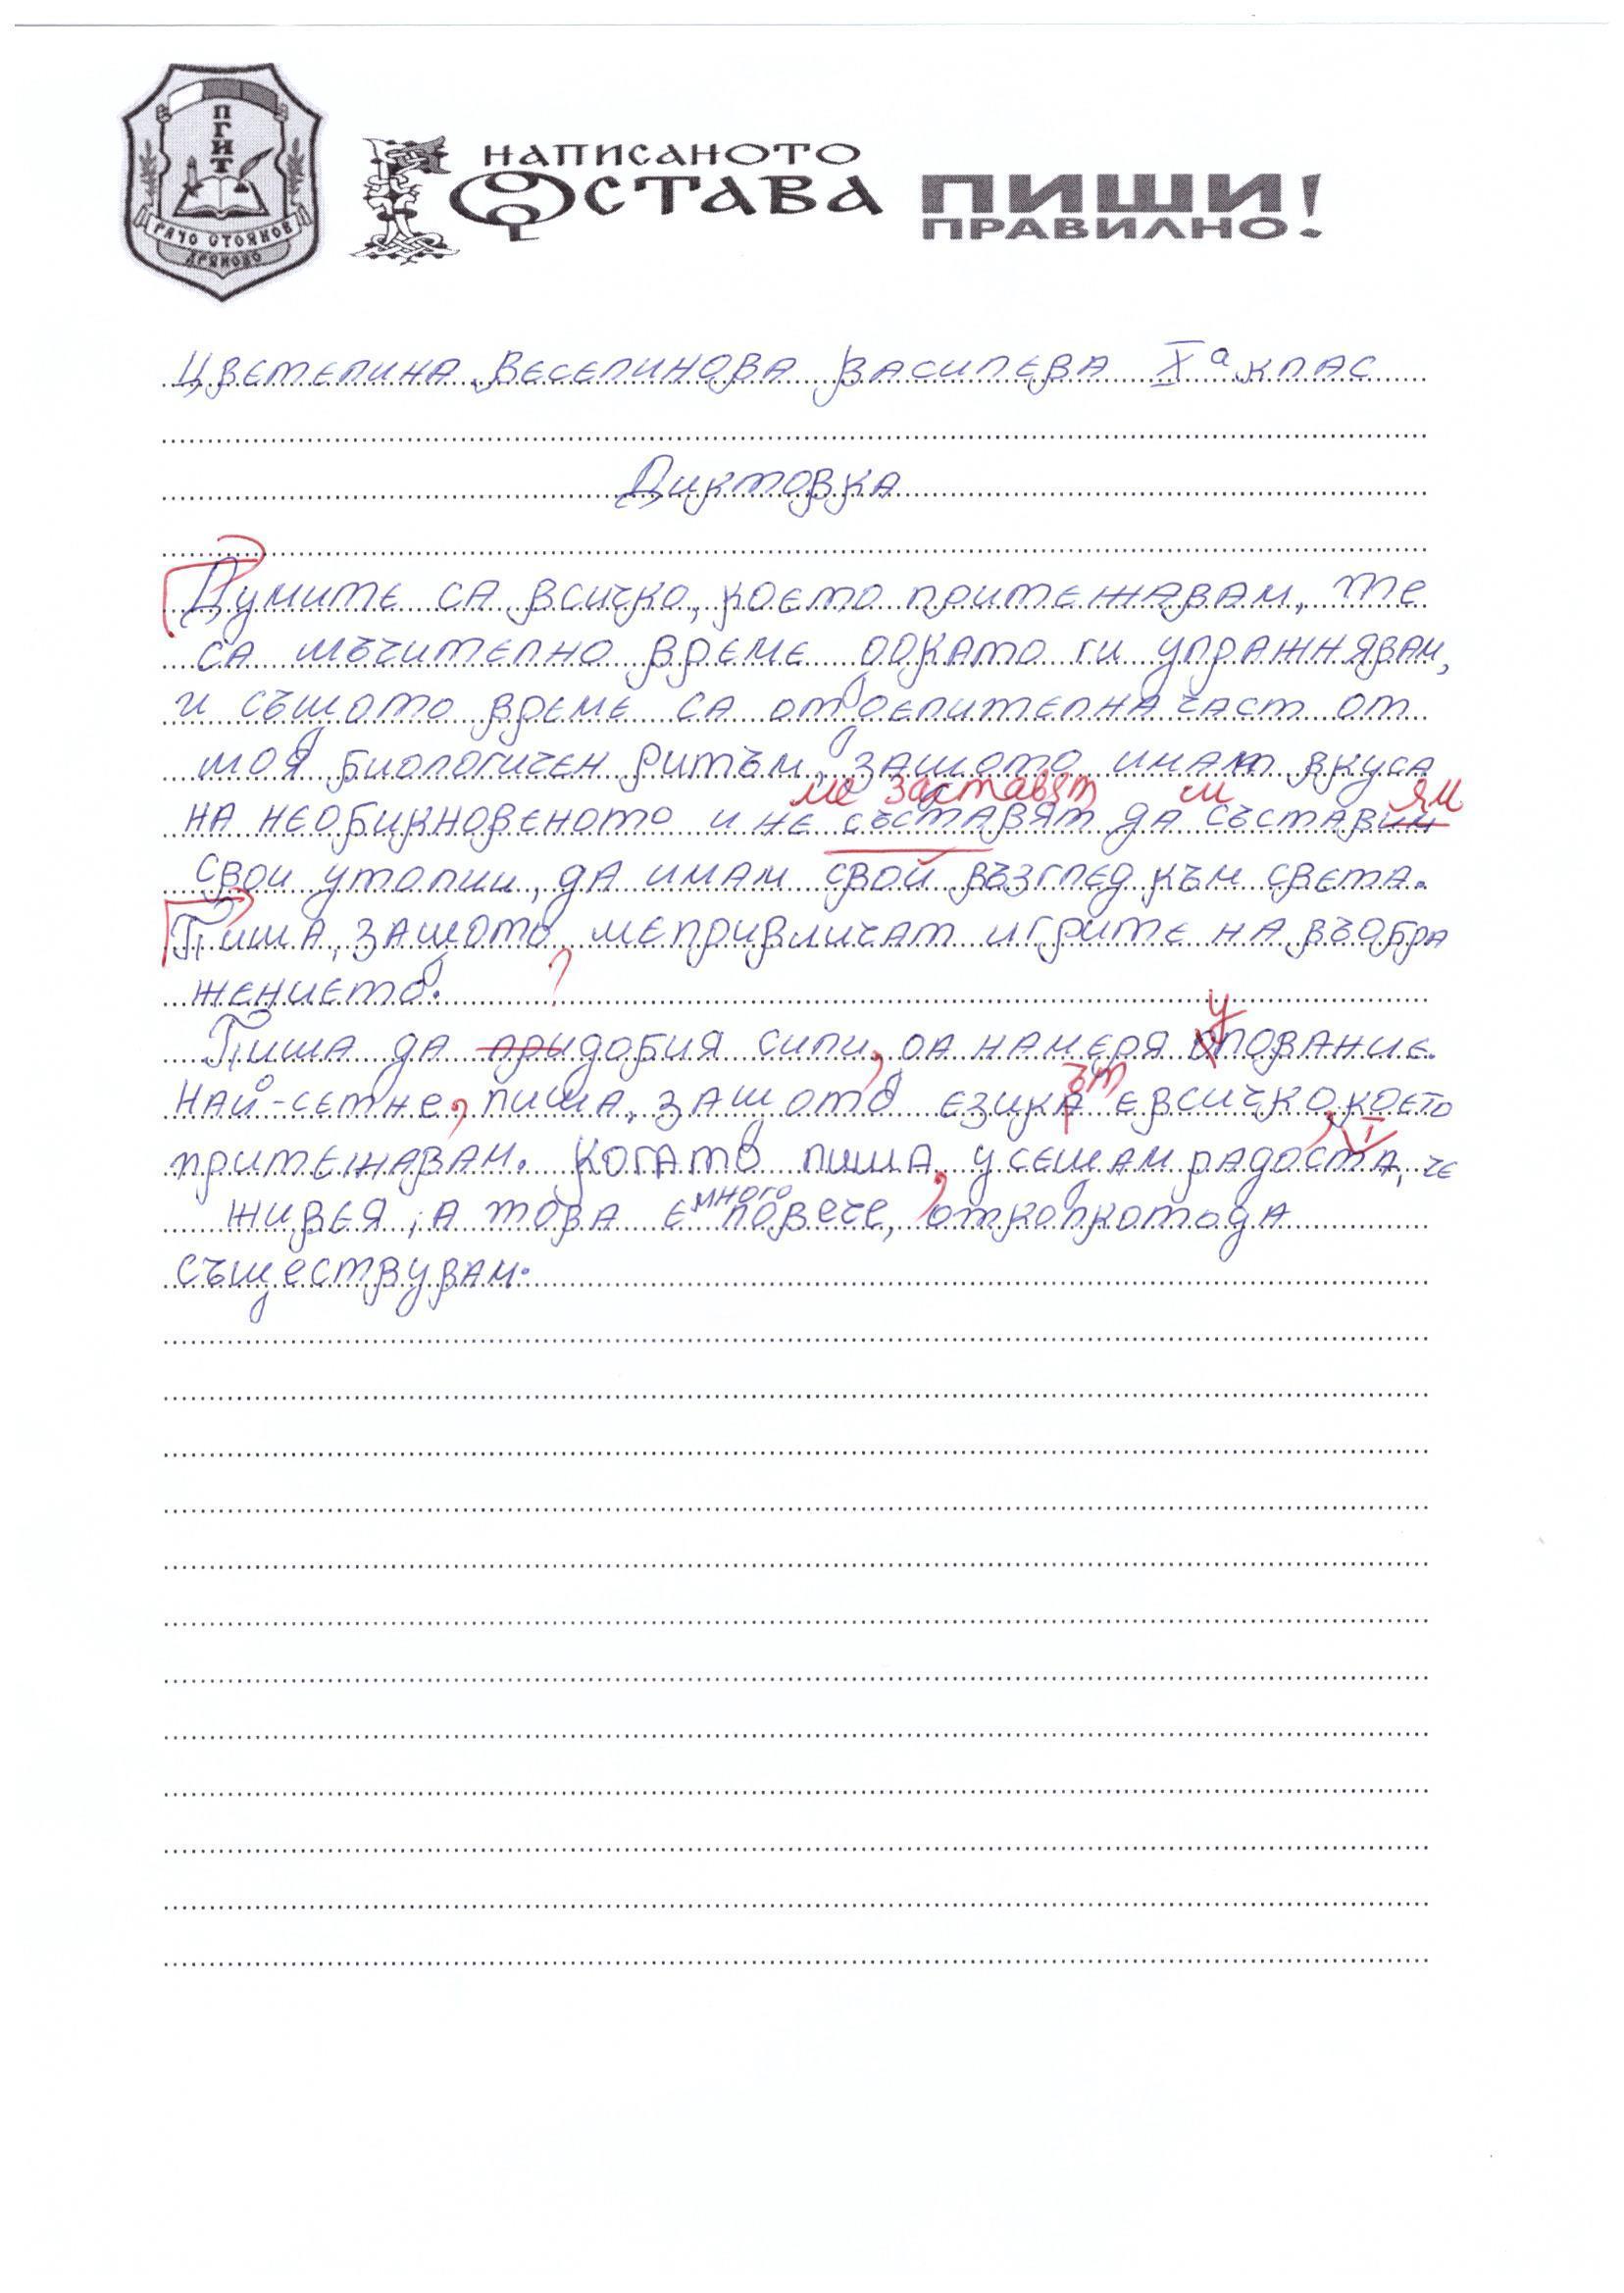 ПГИТ
РАЧО СТОЯНОВ
ДРЯНОВО
НАПИСАНОТО
ОСТАВА
ПИШИ
ПРАВИЛНО!
Цветелина Веселинова Василева Xа клас
Диктовка
Думите са всичко, което притежавам, те
са мъчително време докато ги упражнявам,
и същото време са отделителна част от
моя биологичен ритъм, защото имат вкуса
ме заставят м ям
на необикновеното и не съставят да съставим
свои утопии, да имам свой възглед към света.
Пиша, защото ме привличат игрите на въобра
жението.
?
у
Пиша да придобия сили, да намеря опование.
ът
Най-сетне, пиша, защото езика е всичко, което
притежавам. Когато пиша, усещам радоста, че
т
живея, а това е много повече, отколкото да
съществувам.